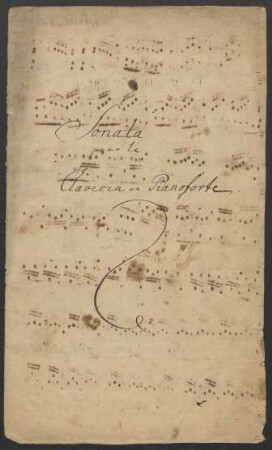 Sonata
pour le
Clavecin ou Pianoforte